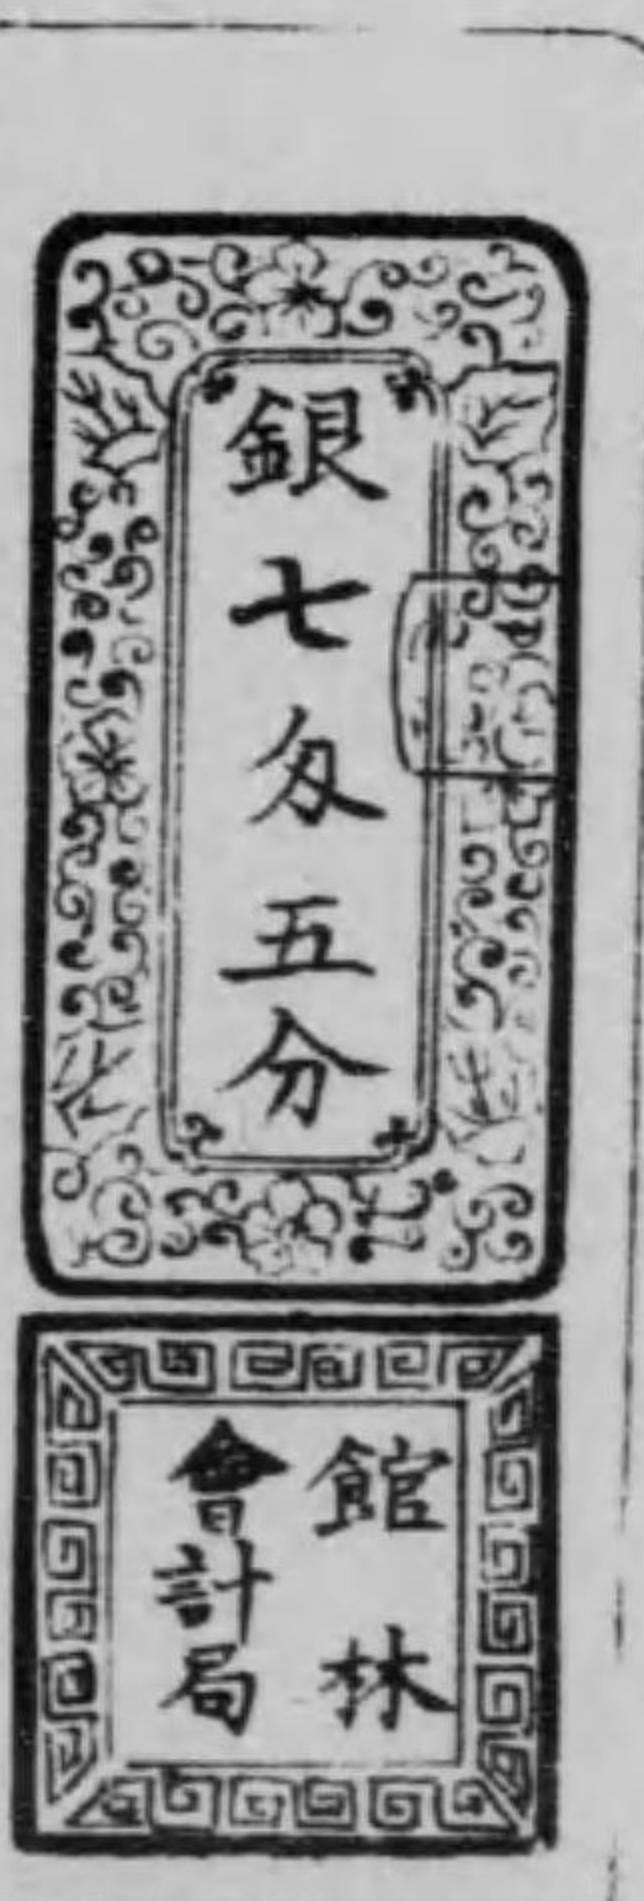 銀七匁五分
館林
會計局